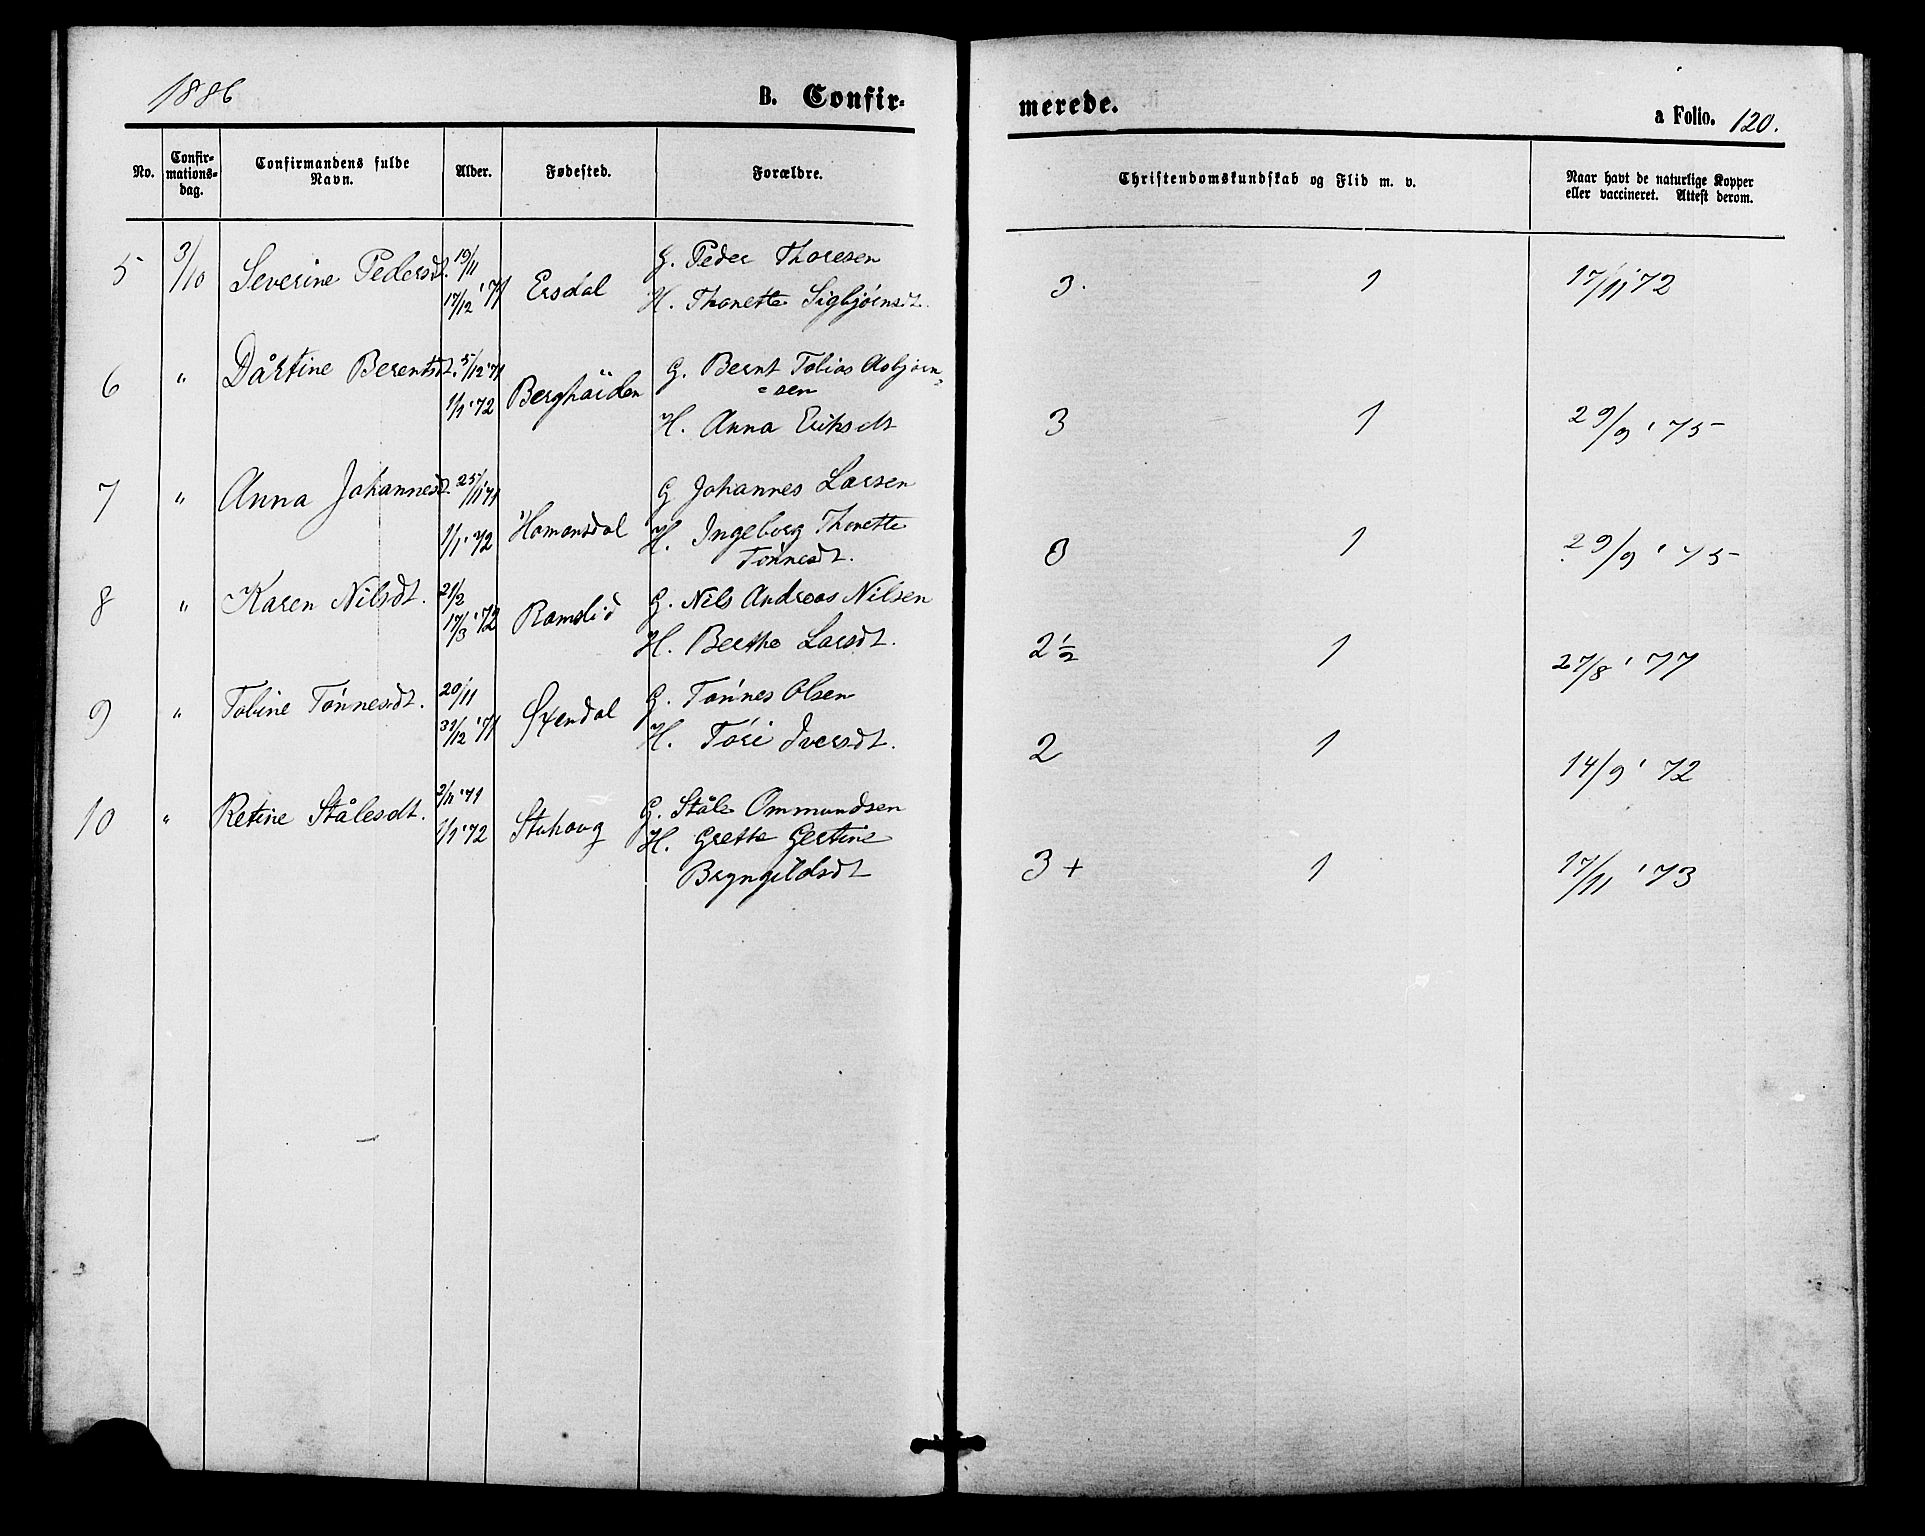 1886
B. Confir-
merede.
a Folio. 120.
No.
Confir-
mations-
dag.
Confirmandens fulde
Navn.
Alder.
Fødested.
Forældre.
Christendomskundskab og Flid m. v.
Naar havt de naturlige Kopper
eller vaccineret. Attest derom.
5 3/10 Severine Pedersdt. 19/11 G. Peder Thoresen
17/12 '71 Ersdal H. Thonette Sigbjørnsdt.
3. 1 17/11 '72
6 " Dårtine Berentsdt. 5/12 '71 G. Bernt Tobias Asbjørn=
=sen
1/1 '72 Berghöiden H. Anna Eriksdt
3 1 29/9 '75
7 " Anna Johannesdt. 25/11 '71 G Johannes Larsen
1/1 '72 Hamansdal H. Ingeborg Thonette
Tønnesdt.
3 1 29/9 '75
8 " Karen Nilsdt. 21/2 G. Nils Andreas Nilsen
17/3 '72 Ramslid H. Berthe Larsdt.
2 1/2 1 27/8 '77
9 " Tobine Tønnesdt. 20/11 G. Tønnes Olsen
31/12 '71 Øxendal H. Tori Iversdt.
2 1 14/9 '72
10 " Retine Stålesdt. 2/11 '71 G. Ståle Ommundsen
1/1 '72 Stuhoug H. Grette Gertine
Bryngildsdt
3 + 1 17/11 '73